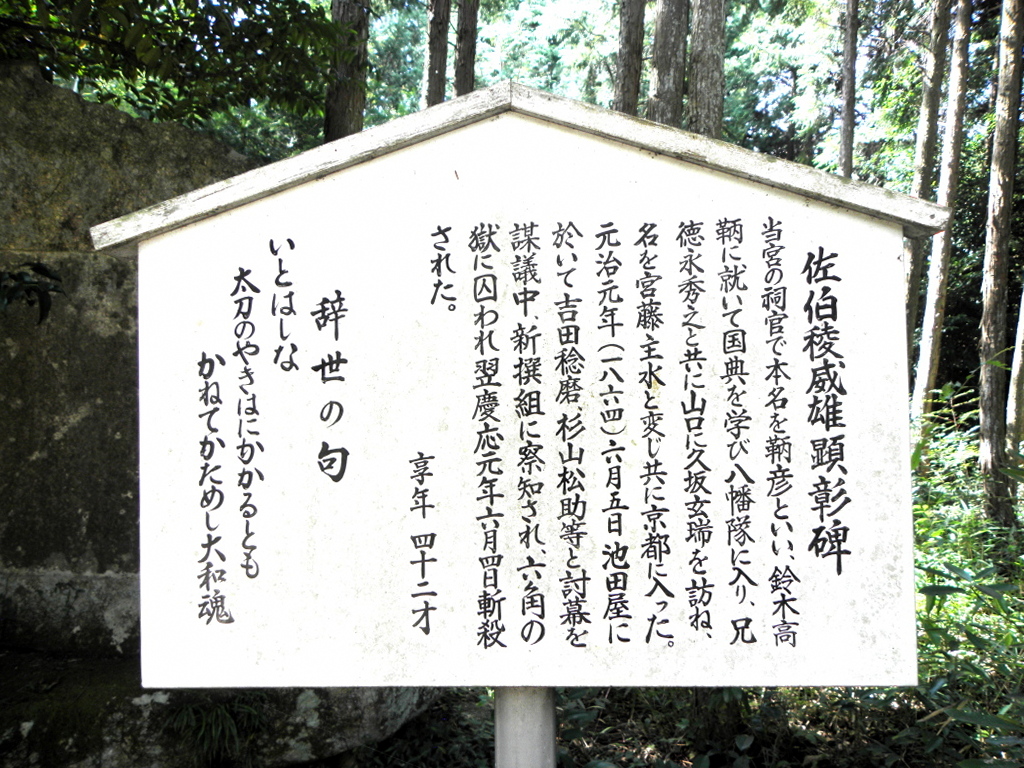 佐伯稜威雄顕彰碑
当宮の祠官で本名を鞆彦といい、鈴木高
鞆に就いて国典を学び八幡隊に入り、兄
徳永秀之と共に山口に久坂玄瑞を訪ね、
名を宮藤主水と変じ共に京都に入った。
元治元年(一八六四)六月五日池田屋に
於いて吉田稔磨、杉山松助等と討幕を
謀議中、新撰組に察知され、六角の
獄に囚われ翌慶応元年六月四日斬殺
された。
享年 四十二才
辞世の句
いとはしな
太刀のやきはにかかるとも
かねてかためし大和魂